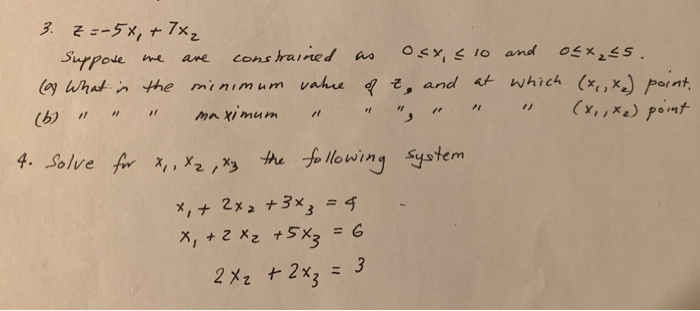 3. z = -5x₁ + 7x₂
Suppose we are constrained as 0 ≤ x₁ ≤ 10 and 0 ≤ x₂ ≤ 5.
(a) What is the minimum value of z, and at which (x₁, x₂) point.
(b) " " " maximum " " ", " " " (x₁, x₂) point
4. Solve for x₁, x₂, x₃ the following system
x₁ + 2x₂ + 3x₃ = 4
x₁ + 2x₂ + 5x₃ = 6
2x₂ + 2x₃ = 3